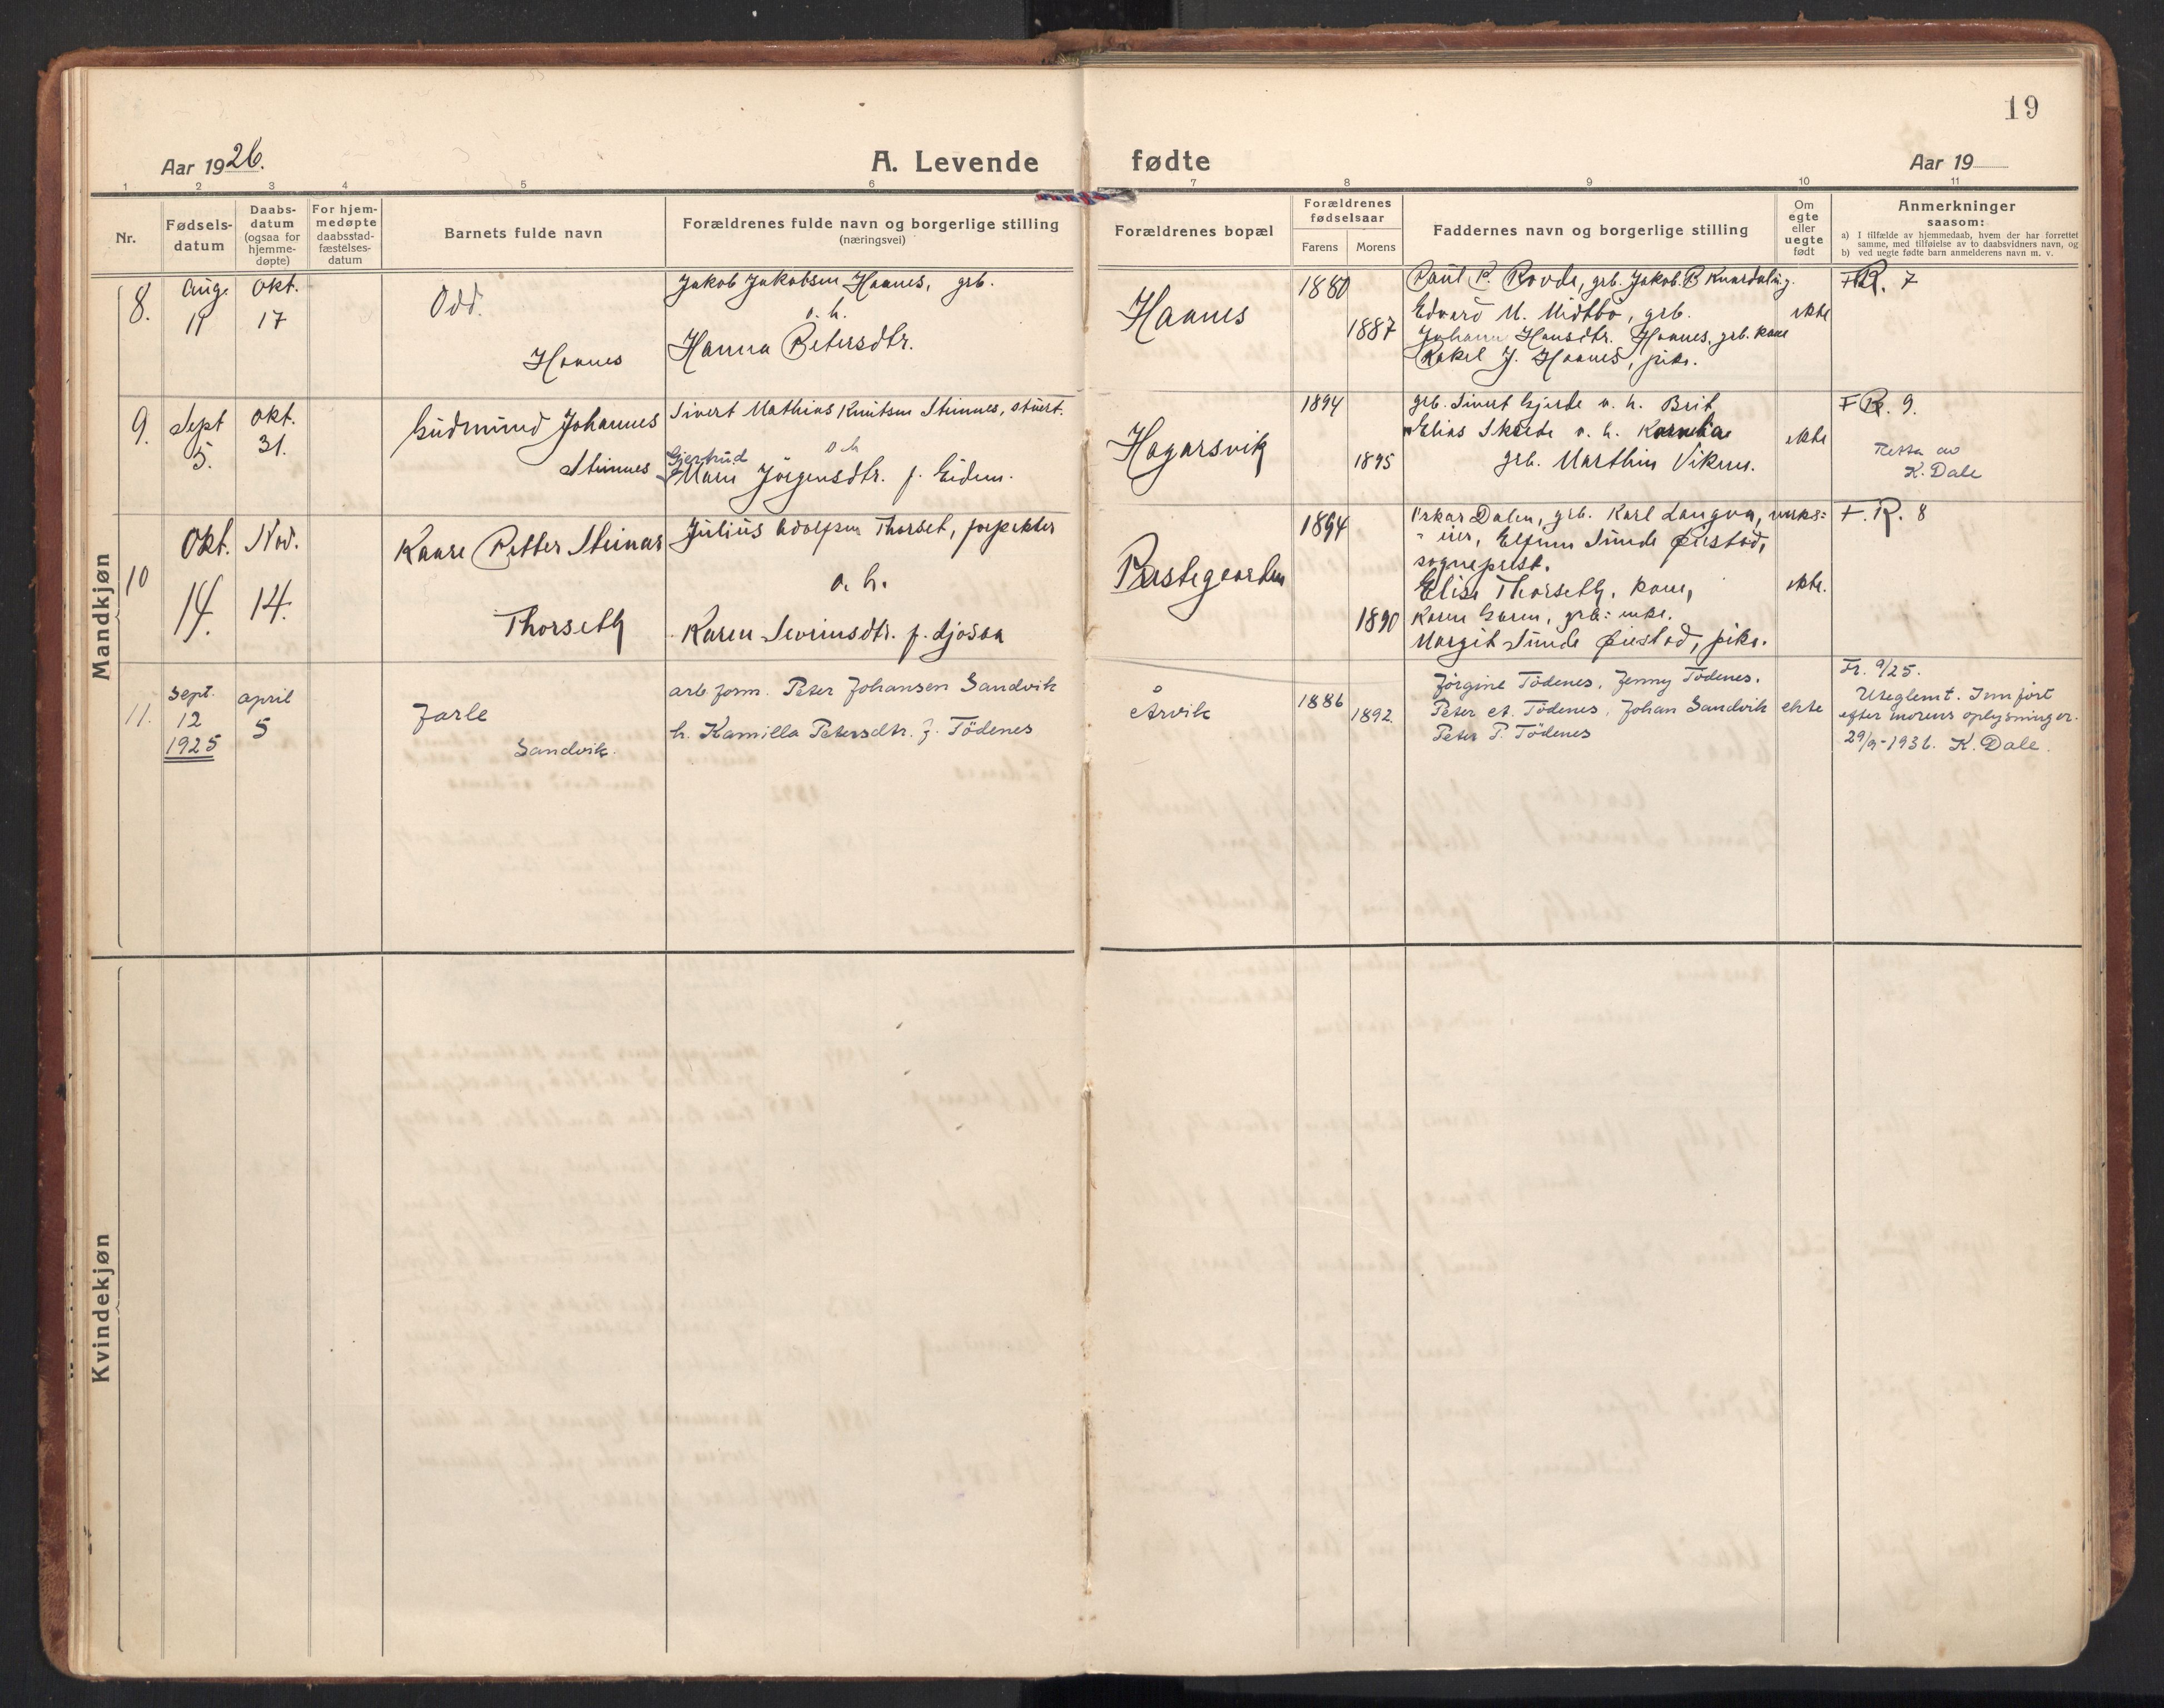 19
Aar 1926.
A. Levende
fødte
Aar 19
1 2 3 4 5 6 7 8 9 10 11
Nr.
Fødsels-
datum
Daabs-
datum
(ogsaa for
hjemme-
døpte)
For hjem-
medøpte
daabsstad-
fæstelses-
datum
Barnets fulde navn
Forældrenes fulde navn og borgerlige stilling
(næringsvei)
Forældrenes bopæl
Forældrenes
fødselsaar
Farens Morens
Faddernes navn og borgerlige stilling
Om
egte
eller
uegte
født
Anmerkninger
saasom:
a) I tilfælde av hjemmedaab, hvem der har forrettet
samme, med tilføielse av to daabsvidners navn, og
b) ved uegte fødte barn anmelderens navn m. v.
Mandkjøn
8.
Aug.
11
Okt.
17
Odd.
Haanes
Jakob Jakobsen Haanes, grb.
o. h.
Hanna Petersdtr.
Haanes
1880
1887
Paul P. Rovde, grb. Jakob P. Knardaling.
Edvard M. Midtbø, grb.
Johanne Hansdtr. Haanes, grb. kone
Rakel J. Haanes, pike.
ekte
F.R. 7
9.
Sept
5.
Okt.
31.
Gudmund Johannes
Steinnes
Sivert Mathias Knutsen Steinnes, stuert.
o h
Gjertrud
Marie Jørgensdtr. f. Eidem.
Hagarsvik
1894
1895
grb. Sivert Gjerde o. h. Brit
Elias Skeide o. h. Kornelia
grb. Marthin Viken.
ekte
F R. 9.
Retta av
K. Dale
10
Okt.
14.
Nov.
14.
Kaare Petter Steinar
Thorseth
Julius Adolfsen Thorset, forpakter
o. h.
Karen Sevrinsdtr. f. Ljosaa
Prestegaarden
1894
1890
Oskar Dalen, grb. Karl Langva, verks=
" eier, Elfinn Sunde Øiestad,
sogneprest.
Elise Thorseth, kone,
Karen Garen, grb: enke.
Margit Sunde Øiestad, pike.
ekte.
F. R. 8
11.
Sept.
12
1925
april
5
Jarle
Sandvik.
arb. form. Peter Johansen Sandvik
h. Kamilla Petersdtr. f. Tödenes
Årvik
1886
1892
Jörgine Tödenes, Jenny Tödenes.
Peter A. Tödenes, Johan Sandvik
Peter P. Tödenes
ekte
Fr. 9/25.
Uteglemt. Innført
efter morens oplysninger.
29/9-1936. K. Dale.
Kvindekjøn